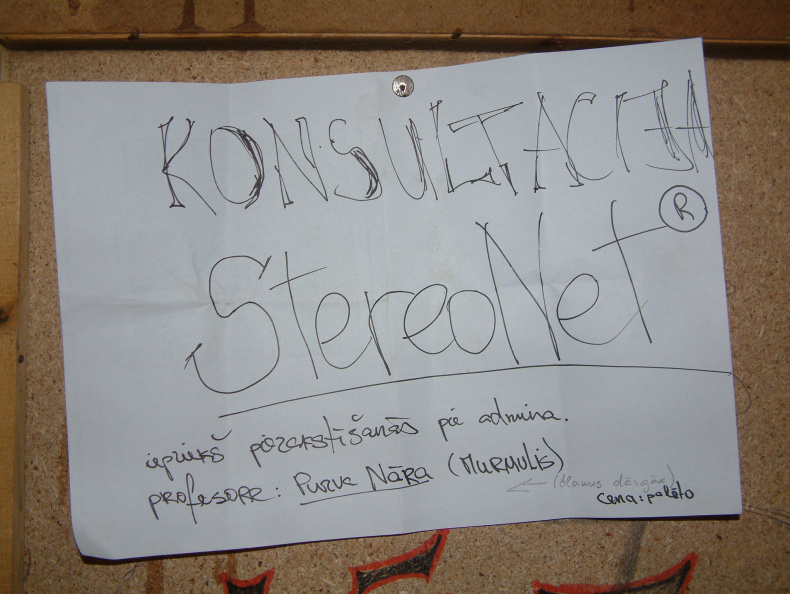 KONSULTACIJA
StereoNet ®
iepriekš pierakstīšanās pie admina.
PROFESORE: PURVE NĀRA (MURMULIS)
dārgāk)
cena: palēto